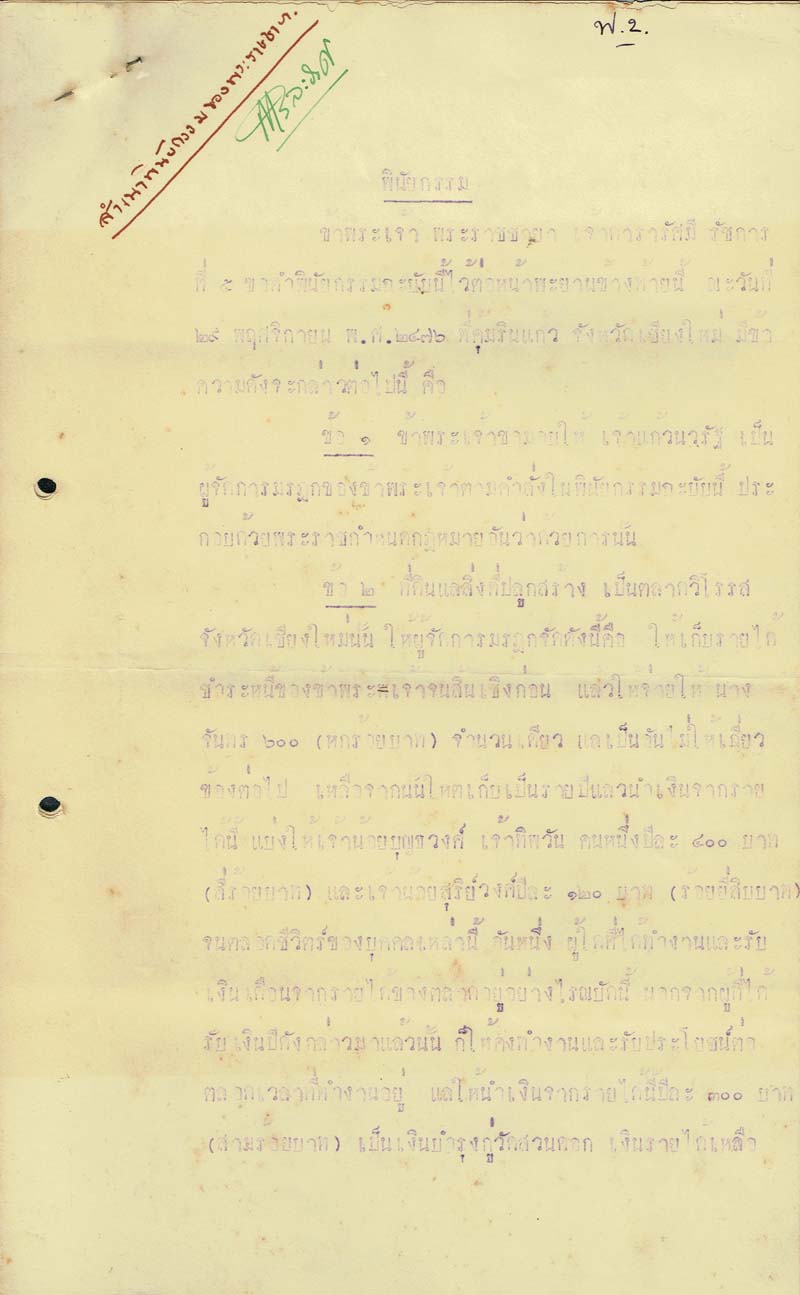 พ.2.
พินัยกรรม
ข้าพระเจ้า พระราชชายา เจ้าดารารัศมี รัชการ
ที่ ๕ ขอทำพินัยกรรมฉะบับนี้ไว้ต่อหน้าพะยานข้างท้ายนี้ ณะวันที่
๒๙ พฤศจิกายน พ.ศ.๒๔๗๖ ที่คุ้มรินแก้ว จังหวัดเชียงใหม่ มีข้อ
ความดังจะกล่าวต่อไปนี้ คือ
ข้อ ๑ ข้าพระเจ้าขอมอบให้ เจ้าแก้วนวรัฐ เป็น
ผู้จัดการมรฎกของข้าพระเจ้าตามคำสั่งในพินัยกรรมฉะบับนี้ ประ
กอบด้วยพระราชกำหนดกฎหมายอันว่าด้วยการนั้น
ข้อ ๒ ที่ดินแลสิ่งที่ปลูกสร้าง เป็นตลาดวิโรรส
จังหวัดเชียงใหม่นั้น ให้ผู้จัดการมรฎกจัดดังนี้คือ ให้เก็บรายได้
ชำระหนี้ของข้าพระเจ้าจนสิ้นเชิงก่อน แล้วให้จ่ายให้ นาง
จันทร ๖๐๐ (หกร้อยบาท) จำนวนเดียว แลเป็นอันไม่ให้เกี่ยว
ข้องต่อไป เหลือจากนั้นให้เก็บเป็นรายปีแลวนำเงินจากราย
ได้นี้ แบ่งให้เจ้าน้อยบุญชวงศ์ เจ้าทิพวัน คนหนึ่งปีละ ๔๐๐ บาท
(สี่ร้อยบาท) และเจ้าน้อยสุริย์วงศ์ปีละ ๑๒๐ บาท (ร้อยยี่สิบบาท)
จนตลอดชีวิตร์ของบุคคลเหล่านี้ อันหนึ่ง ผู้ใดที่ได้ทำงานและรับ
เงินเดือนจากรายได้ของตลาดอยู่อย่างไรณบัดนี้ นอกจากผู้ที่ได้
รับเงินปีดังกล่าวมาแล้วนั้น ก็ให้คงทำงานและรับประโยชน์ต่อ
ตลอดเวลาที่ทำงานอยู่ แลให้นำเงินจากรายได้นี้ปีละ ๓๐๐ บาท
(สามร้อยบาท) เป็นเงินบำรุงกู่วัดสวนดอก เงินรายได้เหลือ